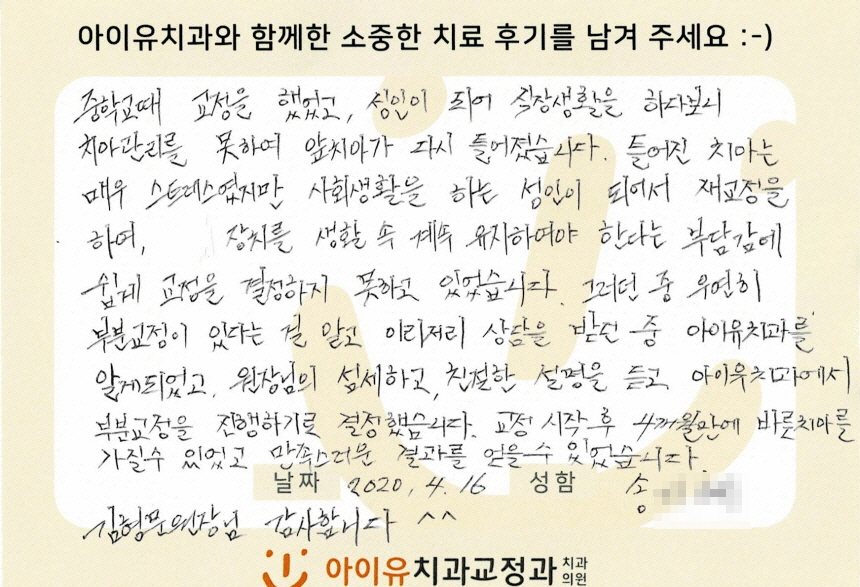 아이유치과와 함께한 소중한 치료 후기를 남겨 주세요 :-)
중학교때 교정을 했었고, 성인이 되어 직장생활을 하다보니
치아관리를 못하여 앞치아가 다시 틀어졌습니다. 틀어진 치아는
매우 스트레스였지만 사회생활을 하는 성인이 되어서 재교정을
하여, 장치를 생활 속 계속 유지하여야 한다는 부담감에
쉽게 교정을 결정하지 못하고 있었습니다. 그러던 중 우연히
부분교정이 있다는 걸 알고 이리저리 상담을 받던 중 아이유치과를
알게되었고, 원장님의 섬세하고, 친절한 설명을 듣고 아이유치과에서
부분교정을 진행하기로 결정했습니다. 교정 시작 후 4개월만에 바른치아를
가질수 있었고 만족스러운 결과를 얻을 수 있었습니다.
날짜 2020. 4. 16 성함 송
김형문원장님 감사합니다 ^^
아이유치과교정과 치과의원